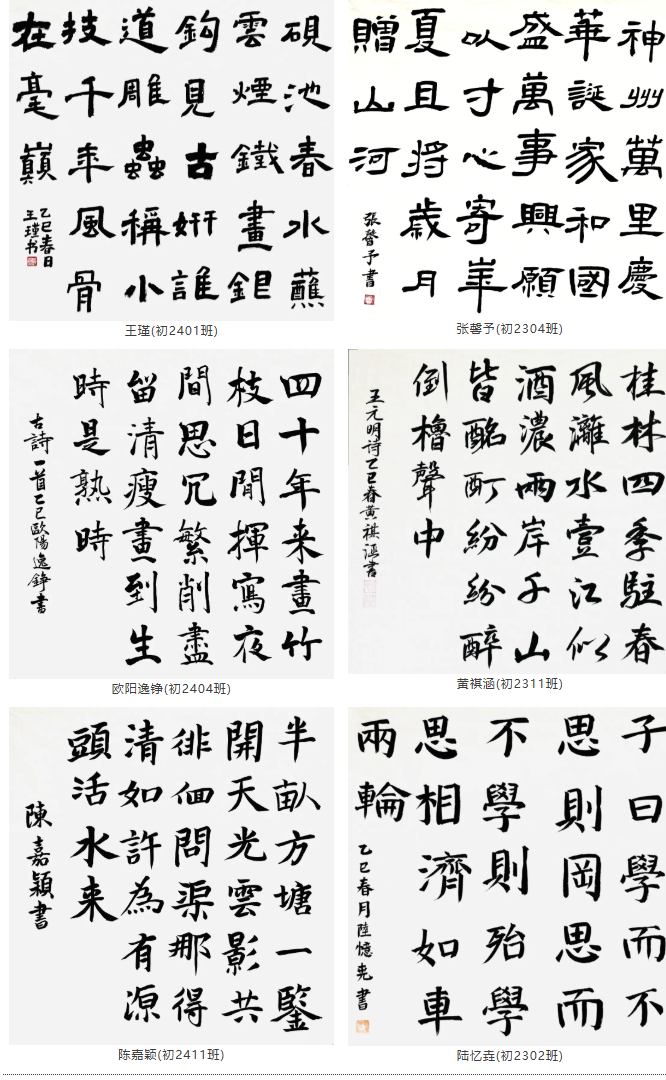 硯池春水蘸
雲煙鐵畫銀
鈎見古姸誰
道雕蟲稱小
技千年風骨
在毫巔
乙巳春日
王瑾书
王瑾(初2401班)
神州萬里慶
華誕家和國
盛萬事興願
以寸心寄崋
夏且將歲月
贈山河
張馨予書
张馨予(初2304班)
四十年来畫竹
枝日間揮寫夜
間思冗繁削盡
留清瘦畫到生
時是熟時
古詩一首乙巳歐陽逸錚書
欧阳逸铮(初2404班)
桂林四季駐春
風灕水壹江似
酒濃兩岸千山
皆酩酊紛紛醉
倒櫓聲中
王元明诗乙巳春黄祺涵書
黄祺涵(初2311班)
半畝方塘一鑒
開天光雲影共
徘徊問渠那得
清如許為有源
頭活水来
陳嘉穎書
陈嘉颖(初2411班)
子曰學而不
思則岡思而
不學則殆學
思相濟如車
兩輪
乙巳春月陸憶垚書
陆忆垚(初2302班)